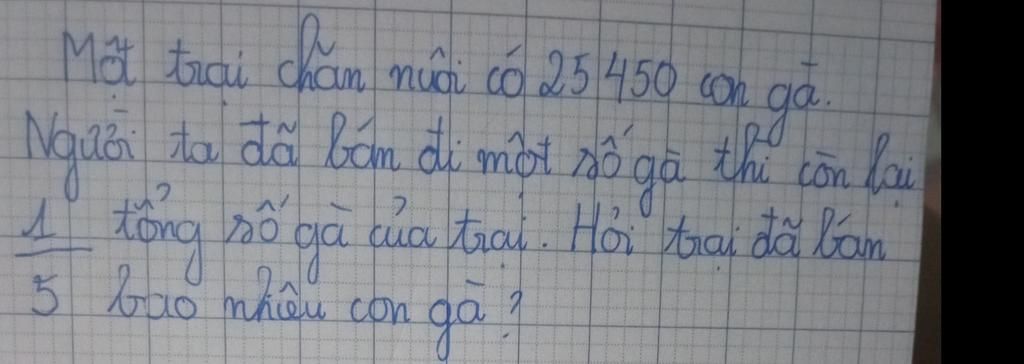 Một trại chăn nuôi có 25 450 con gà.
Người ta đã bán đi một số gà thì còn lại
1/5 tổng số gà của trại. Hỏi trại đã bán
bao nhiêu con gà?